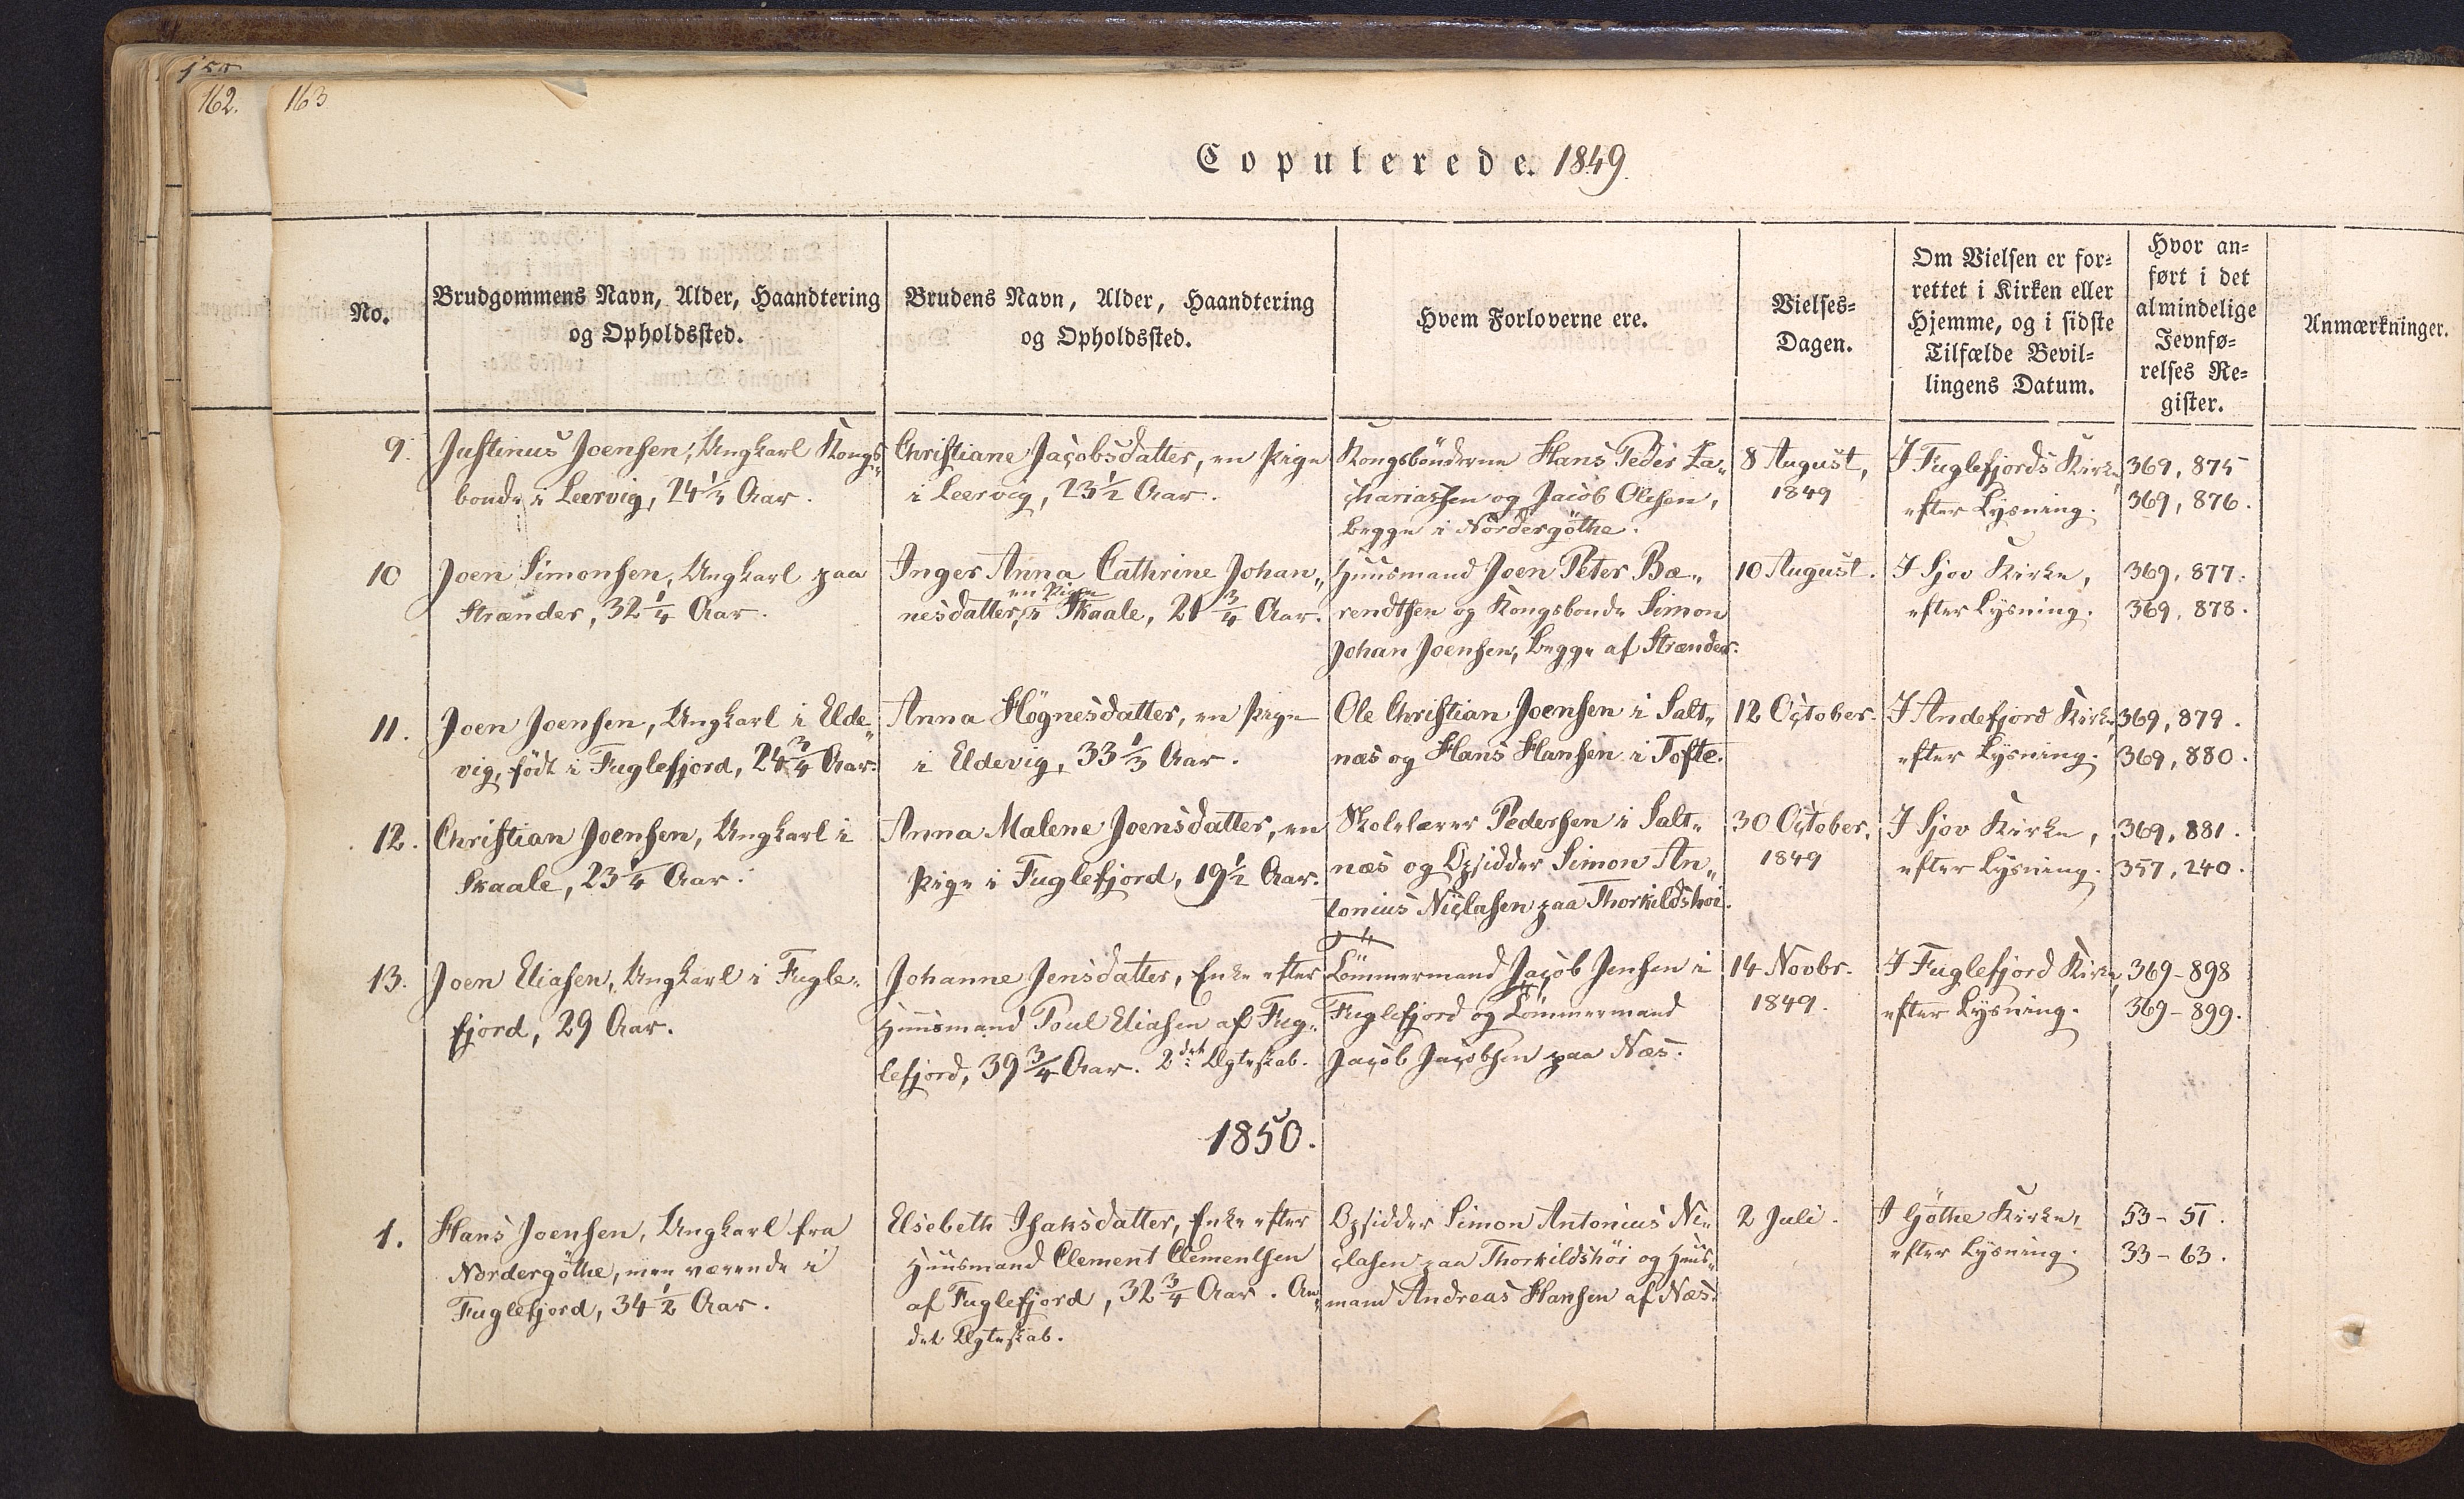 150
162.
163
Copulerede. 1849.
No.
Brudgommens Navn, Alder, Haandtering
og Opholdssted.
Brudens Navn, Alder, Haandtering
og Opholdssted.
Hvem Forloverne ere.
Vielses-
Dagen.
Om Vielsen er for-
rettet i Kirken eller
Hjemme, og i sidste
Tilfælde Bevil-
lingens Datum.
Hvor an-
ført i det
almindelige
Jevnfø-
relses Re-
gister.
Anmærkninger.
9.
Justinus Joensen, Ungkarl Kongs-
bonde i Leervig, 24 1/3 Aar.
Christiane Jacobsdatter, en Pige
i Leervig, 23 1/2 Aar.
Kongsbönderne Hans Peder Za-
chariassen og Jacob Olesen,
begge i Nordergöthe.
8 August,
1849
I Fuglefjords Kirke,
efter Lysning.
369, 875
369, 876.
10
Joen Simonsen, Ungkarl paa
Strænder, 32 1/4 Aar.
Inger Anna Cathrine Johan-
en Pige
nesdatter, i Skaale, 21 3/4 Aar.
Huusmand Joen Peter Bæ-
rendtsen og Kongsbonde Simon
Johan Joensen, begge af Strænder.
10 August.
I Sjov Kirke,
efter Lysning.
369, 877.
369, 878.
11.
Joen Joensen, Ungkarl i Elde-
vig, födt i Fuglefjord, 24 3/4 Aar.
Anna Högnesdatter, en Pige
i Eldevig, 33 1/3 Aar.
Ole Christian Joensen i Salt-
næs og Hans Hansen i Tofte.
12 October.
I Andefjord Kirke,
efter Lysning.
369, 879.
369, 880.
12.
Christian Joensen, Ungkarl i
Skaale, 23 1/4 Aar.
Anna Malene Joensdatter, en
Pige i Fuglefjord, 19 1/2 Aar.
Skolelærer Pedersen i Salt-
næs og Opsidder Simon An-
tonius Niclasen paa Thorkildshöi.
30 October,
1849
I Sjov Kirke,
efter Lysning.
369, 881.
357, 240.
13.
Joen Eliasen, Ungkarl i Fugle-
fjord, 29 Aar.
Johanne Jensdatter, Enke efter
Huusmand Poul Eliasen af Fug-
lefjord, 39 3/4 Aar. 2det Ægteskab.
Tömmermand Jacob Jensen i
Fuglefjord og Tömmermand
Jacob Jacobsen paa Næs.
14 Novbr.
1849.
I Fuglefjord Kirke,
efter Lysning.
369-898
369-899.
1850.
1.
Hans Joensen, Ungkarl fra
Nordergöthe, men værende i
Fuglefjord, 34 1/2 Aar.
Elsebeth Isaksdatter, Enke efter
Huusmand Clement Clementsen
af Fuglefjord, 32 3/4 Aar. An-
det Ægteskab.
Opsidder Simon Antonius Ni-
clasen paa Thorkildshöi og Huus-
mand Andreas Hansen af Næs.
2 Juli.
I Göthe Kirke,
efter Lysning.
53-51.
33-63.